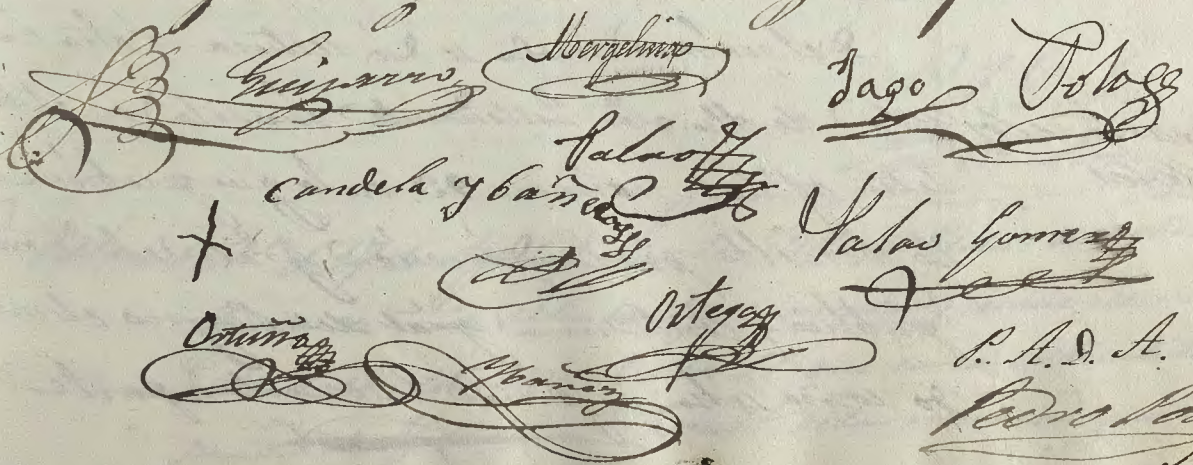 Guiparro Mergelina Yago Polo
Palao
Candela Ybañez
+ Palao Gomez
Ortuña Ybañez Ortega
P. A. D. A.
Pedro